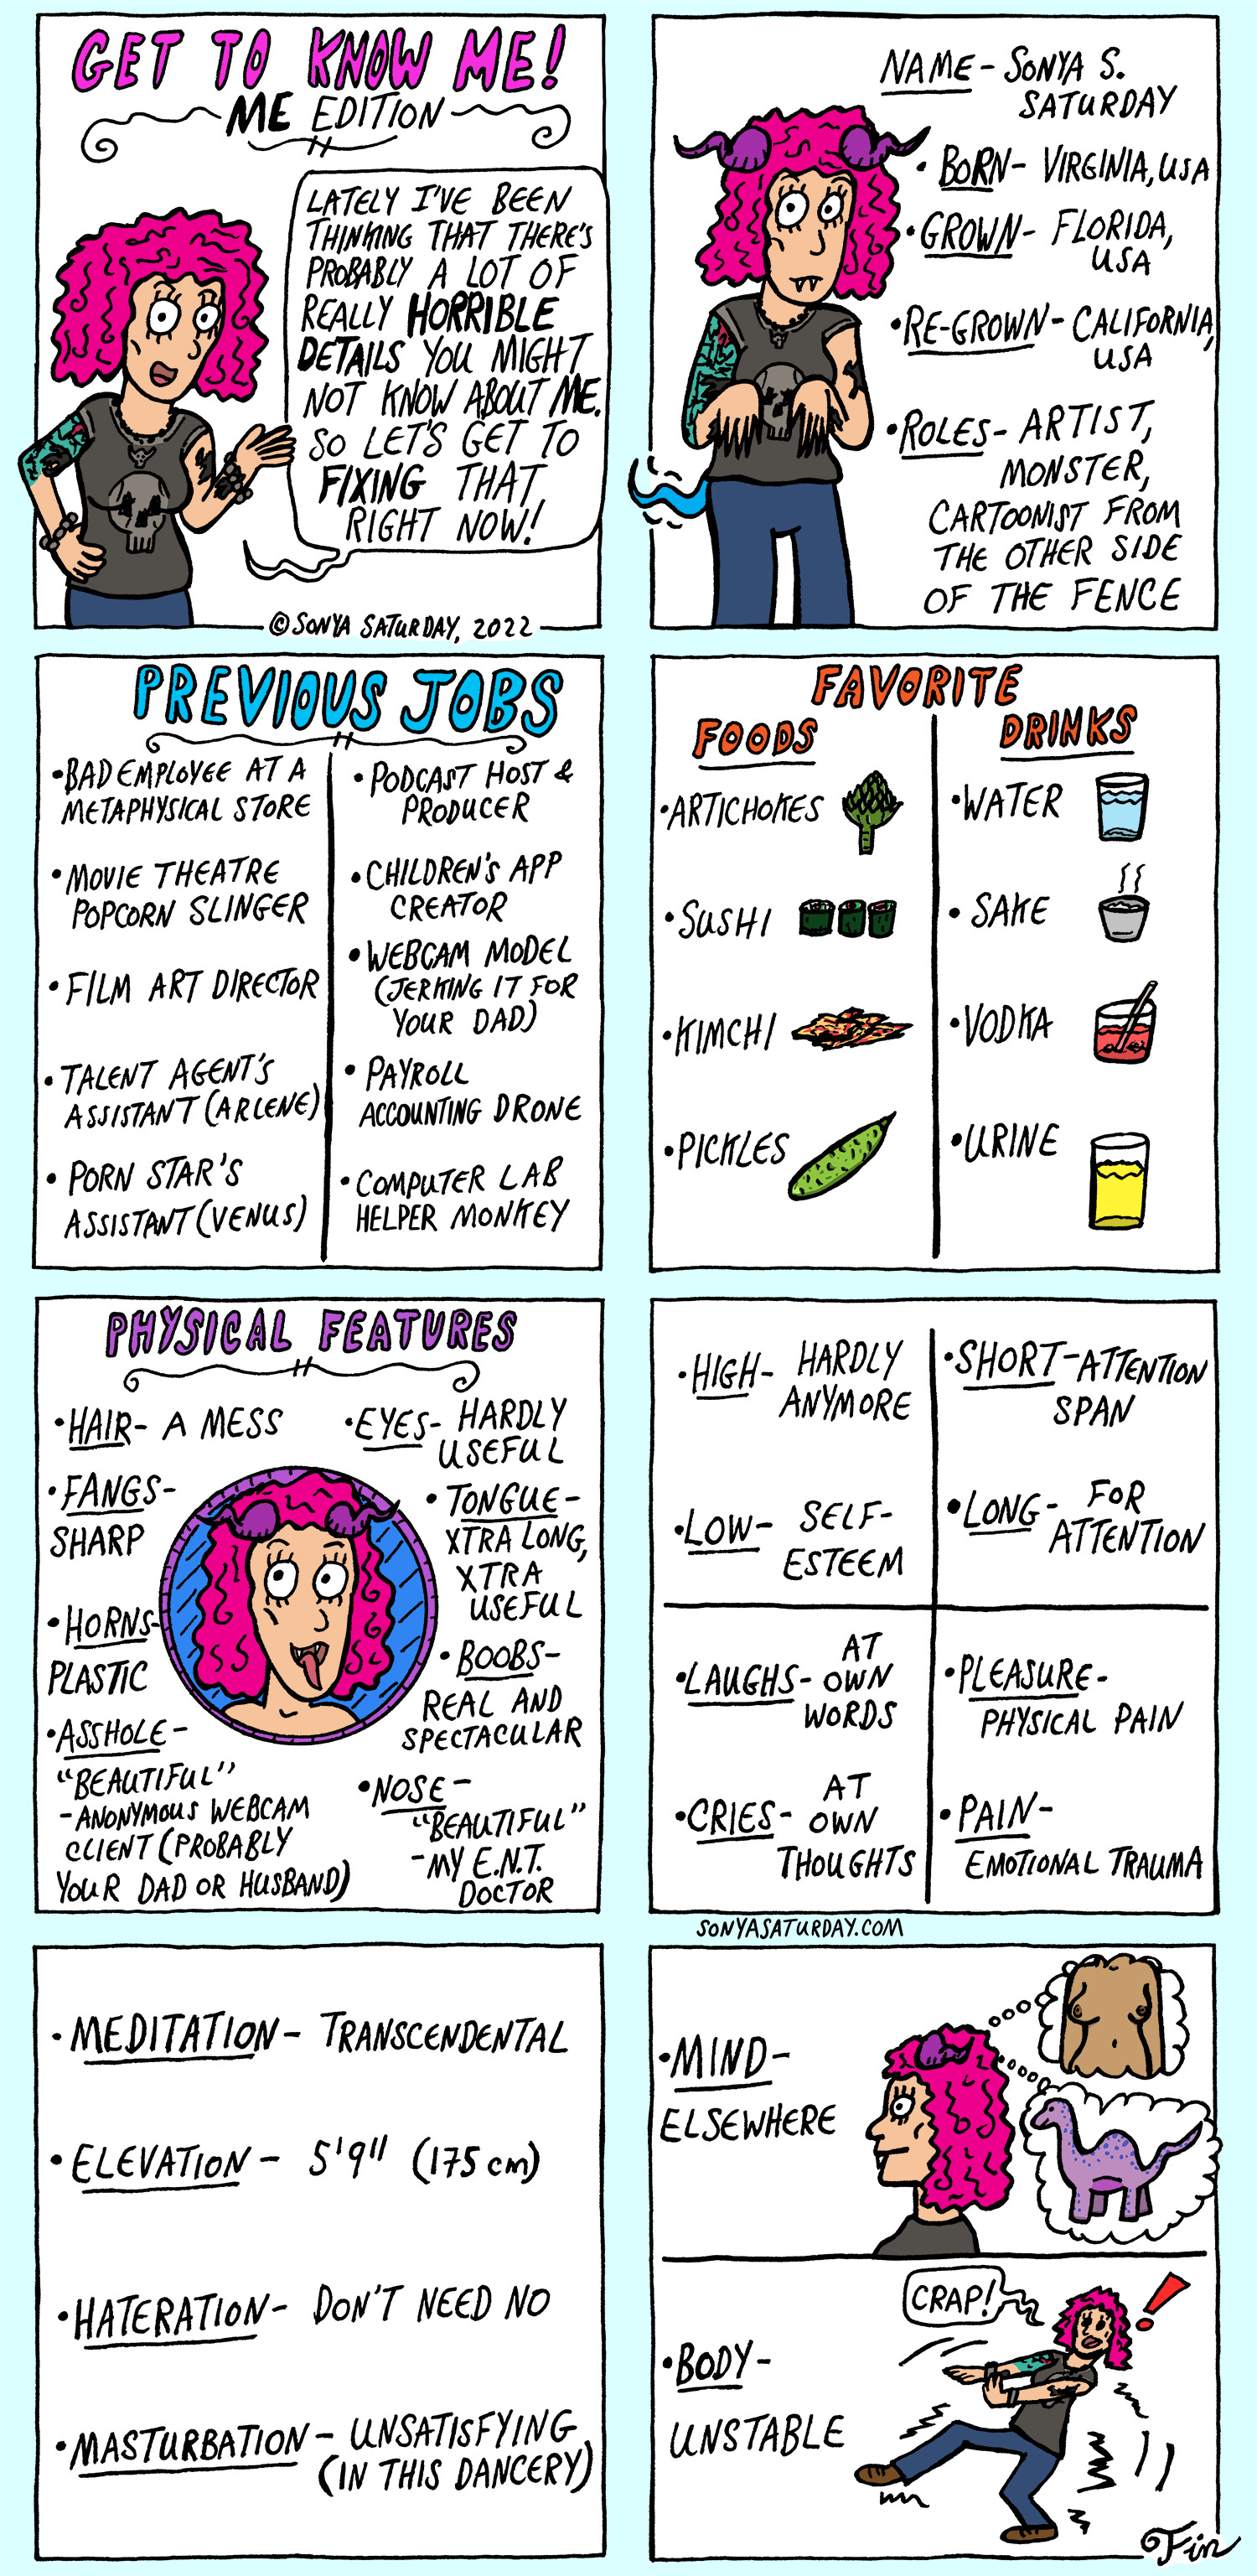 GET TO KNOW ME!
ME EDITION
LATELY I'VE BEEN
THINKING THAT THERE'S
PROBABLY A LOT OF
REALLY HORRIBLE
DETAILS YOU MIGHT
NOT KNOW ABOUT ME.
SO LET'S GET TO
FIXING THAT,
RIGHT NOW!
© SONYA SATURDAY, 2022
NAME - SONYA S.
SATURDAY
• BORN - VIRGINIA, USA
• GROWN - FLORIDA,
USA
• RE-GROWN - CALIFORNIA,
USA
• ROLES - ARTIST,
MONSTER,
CARTOONIST FROM
THE OTHER SIDE
OF THE FENCE
PREVIOUS JOBS
• BAD EMPLOYEE AT A
METAPHYSICAL STORE
• MOVIE THEATRE
POPCORN SLINGER
• FILM ART DIRECTOR
• TALENT AGENT'S
ASSISTANT (ARLENE)
• PORN STAR'S
ASSISTANT (VENUS)
• PODCAST HOST &
PRODUCER
• CHILDREN'S APP
CREATOR
• WEBCAM MODEL
(JERKING IT FOR
YOUR DAD)
• PAYROLL
ACCOUNTING DRONE
• COMPUTER LAB
HELPER MONKEY
FAVORITE
FOODS
• ARTICHOKES
• SUSHI
• KIMCHI
• PICKLES
DRINKS
• WATER
• SAKE
• VODKA
• URINE
PHYSICAL FEATURES
• HAIR - A MESS
• FANGS -
SHARP
• HORNS -
PLASTIC
• ASSHOLE -
"BEAUTIFUL"
- ANONYMOUS WEBCAM
CLIENT (PROBABLY
YOUR DAD OR HUSBAND)
• EYES - HARDLY
USEFUL
• TONGUE -
XTRA LONG,
XTRA
USEFUL
• BOOBS -
REAL AND
SPECTACULAR
• NOSE -
"BEAUTIFUL"
- MY E.N.T.
DOCTOR
• HIGH - HARDLY
ANYMORE
• LOW - SELF-
ESTEEM
• SHORT - ATTENTION
SPAN
• LONG - FOR
ATTENTION
• LAUGHS - AT
OWN
WORDS
• CRIES - AT
OWN
THOUGHTS
• PLEASURE -
PHYSICAL PAIN
• PAIN -
EMOTIONAL TRAUMA
SONYASATURDAY.COM
• MEDITATION - TRANSCENDENTAL
• ELEVATION - 5'9" (175 cm)
• HATERATION - DON'T NEED NO
• MASTURBATION - UNSATISFYING
(IN THIS DANCERY)
• MIND -
ELSEWHERE
• BODY -
UNSTABLE
CRAP!
!
Fin